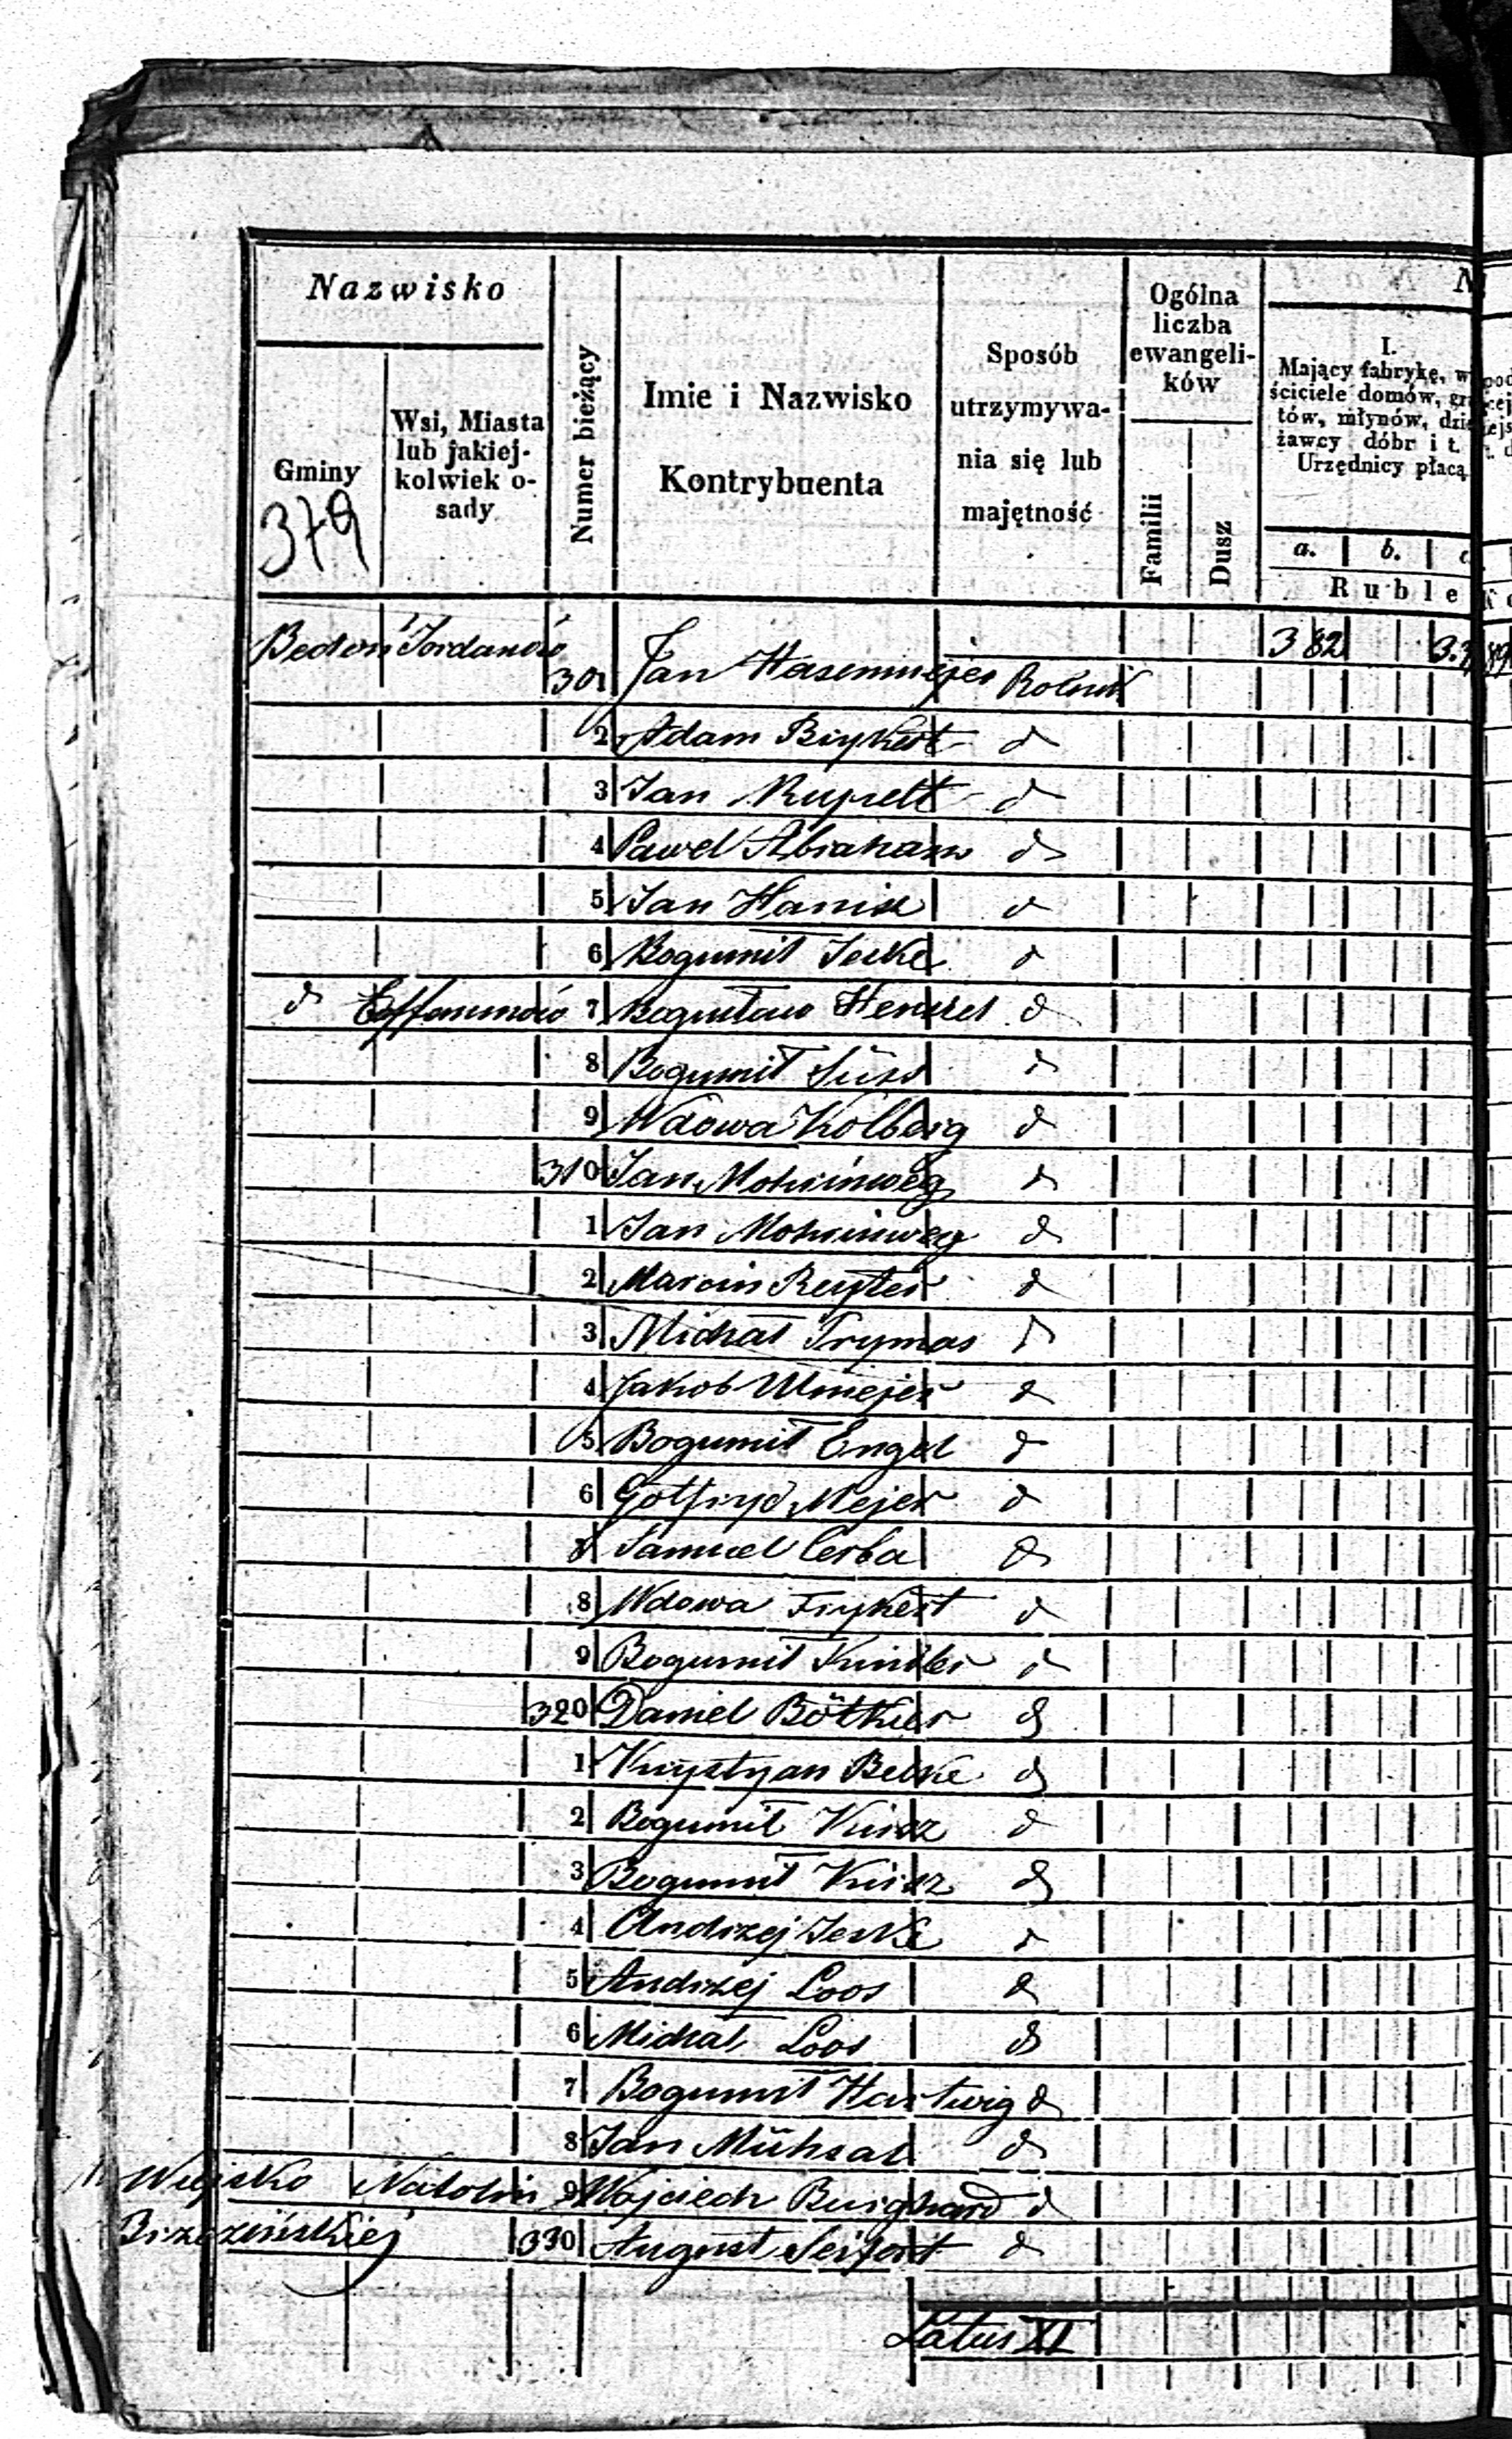 Nazwisko
Gminy
Wsi, Miasta
lub jakiej-
kolwiek o-
sady
Numer bieżący
Imie i Nazwisko
Kontrybuenta
Sposób
utrzymywa-
nia się lub
majętność
Ogólna
liczba
ewangeli-
ków
Familii
Dusz
I.
Mający fabrykę, w
ściciele domów, gr
tów, młynów, dzie
żawcy dóbr i t.
Urzędnicy płacą
a. b. c
Ruble
379
Bedoń Jordanów 301 Jan Hasenmejer Rolnik 3 82
2 Adam
3 Jan Ruprett d
4 Paweł Abraham d
5 Jan d
6 Bogumił Jeske d
d 7 Bogusław Henzel d
8 Bogumił Süss d
9 Wdowa Kolberg d
310 Jan d
1 Jan d
2 Marcin Reyter d
3 Michał Prymas d
4 Jakob Ulmejer d
5 Bogumił Engel d
6 Gotfryd Mejer d
7 Samuel Cerba d
8 Wdowa Frykert d
9 Bogumił Kindler d
320 Daniel Bötkier d
1 Krystyan Belke d
2 Bogumił Kirsz d
3 Bogumił Kirsz d
4 Andrzej Jeske d
5 Andrzej Loos d
6 Michał Loos d
7 Bogumił Hartwig d
8 Jan Mühsal d
Wiejsko Natolin 9 Wojciech Burghard d
Brzezińskiej 330 August Seifert d
Latus XI